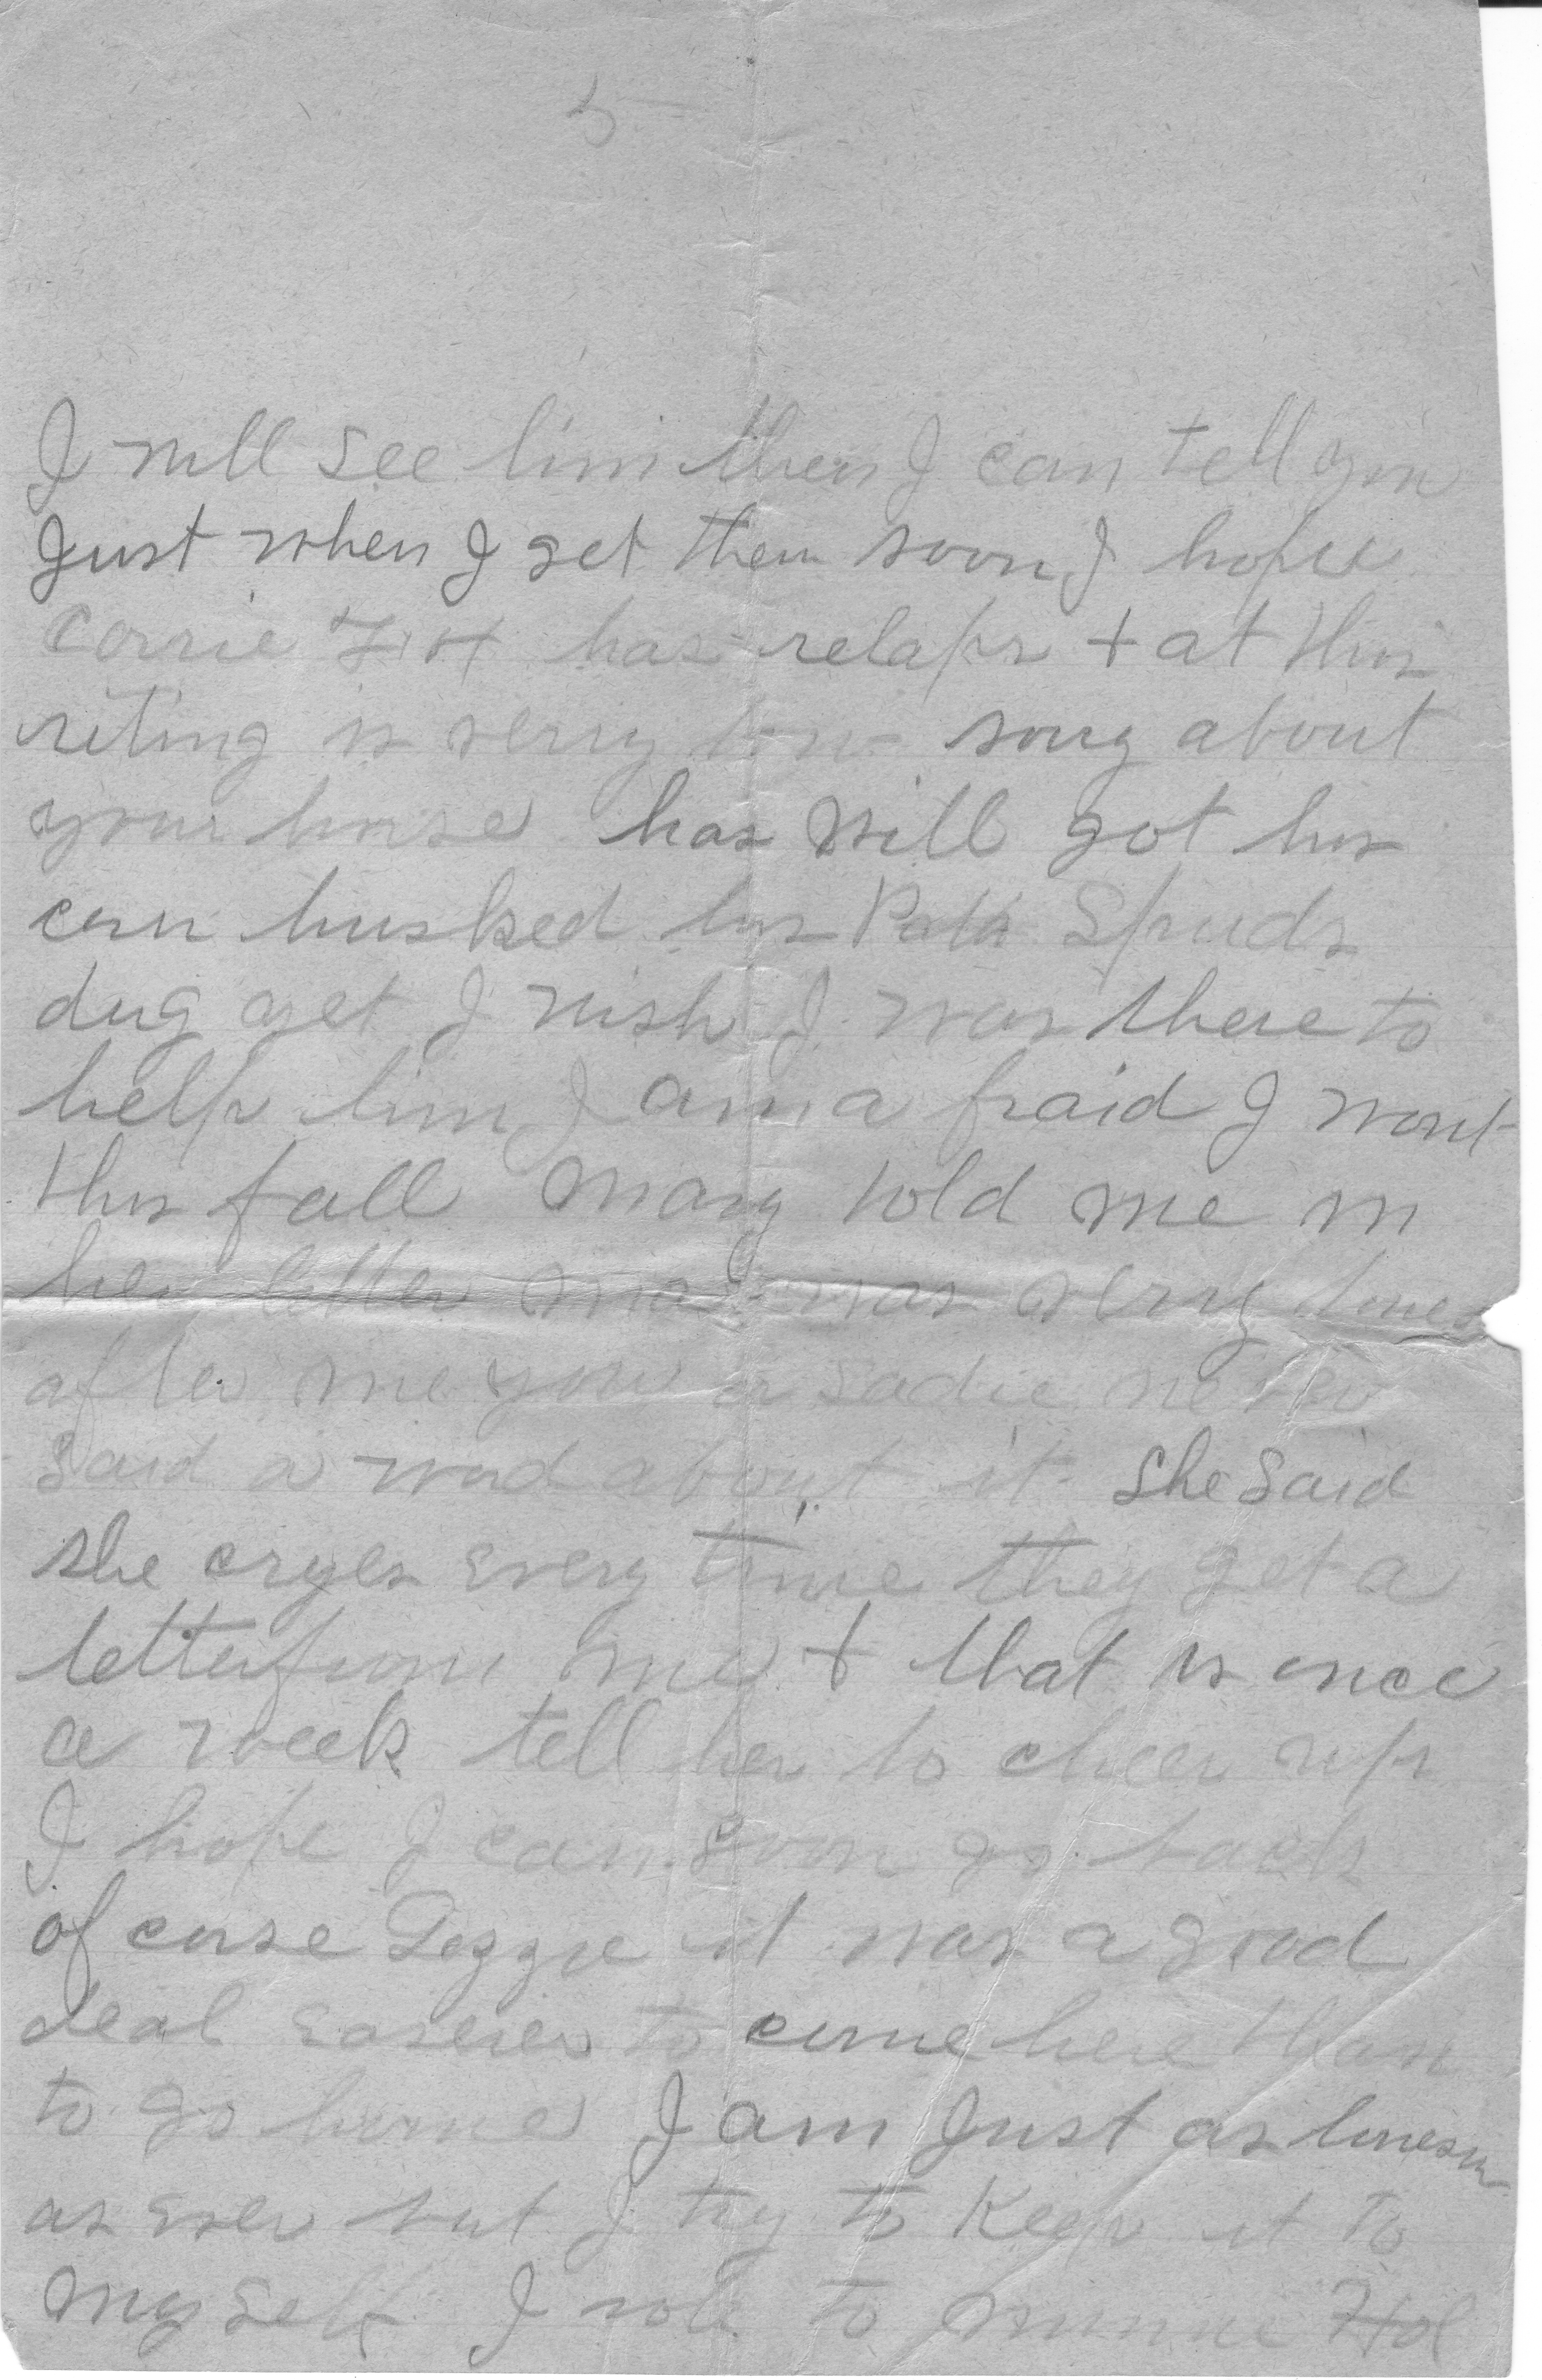 5
I will see him then I can tell you
Just when I get them soon I hope
Corrie has relaps + at this
riting is verry low sory about
your horse has Will got his
corn husked his Spuds
dug yet I wish I was there to
help him I am a fraid I wont
this fall Mary told me in
her letter ma was verry lones
after me you or Sadie never
Said a word about it She Said
she cryes every time they get a
letter from me + that is once
a week tell her to cheer up
I hope I can Soon go back
of corse it was a good
deal easerer to come here than
to go home I am Just as lonesom
as ever but I try to Keep it to
my Self I rote to Minnie Hol